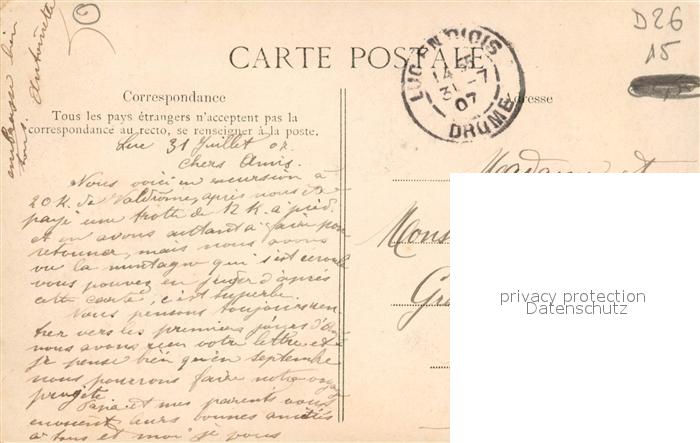 CARTE POSTALE
D26
15
LUC-EN-DIOIS
14 35
31 -7
07
DROME
Correspondance
Adresse
Tous les pays étrangers n'acceptent pas la
correspondance au recto, se renseigner à la poste.
Luc 31 Juillet 07
Chers Amis.
Nous voici en excursion à
20 K. de Valdrôme, après nous être
payé une trotte de 12 K. à pied.
et en avons autant à faire pour
retourner, mais nous avons
vu la montagne qui s'est écroulée
vous pouvez en juger d'après
cette carte, c'est superbe.
Nous pensons toujours ren-
trer vers les premiers jours d'
nous avons reçu votre lettre et
je pense bien qu'en septembre
nous pourrons faire notre voyage
projeté
Papa et mes parents vous
envoient leurs bonnes amitiés
à tous et moi je vous
embrasse bien
tous. Antoinette
Madame et
Mons
Gr
privacy protection
Datenschutz